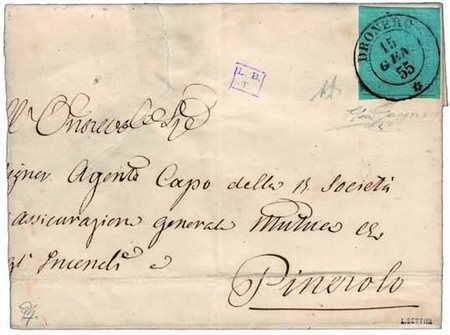 DRONERO
15
GEN.
55
L. B.
T.
All' Onorevole Sig.e
Signor Agente Capo della R Società
d'Assicurazione generale Mutua
gl' Incendi
Pinerolo